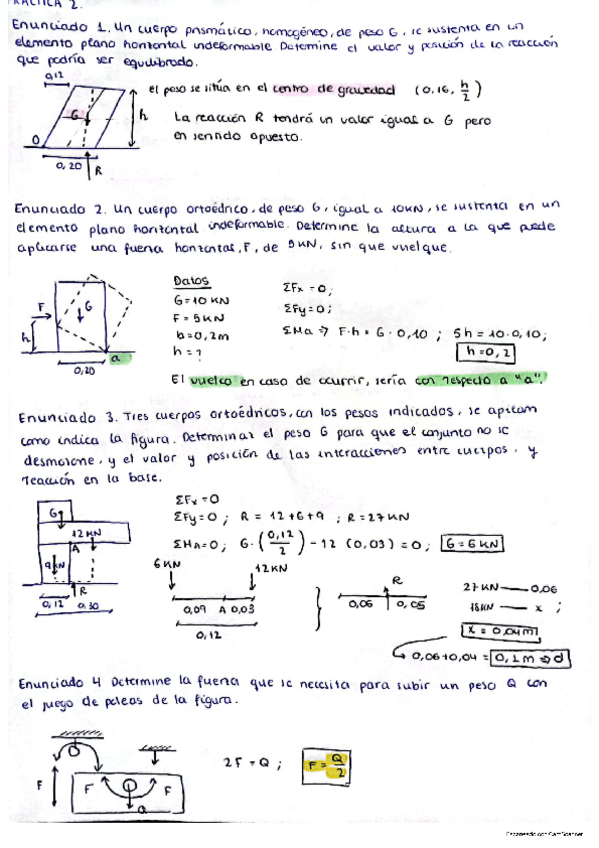 PRÁCTICA 2.
Enunciado 1. Un cuerpo prismático, homogéneo, de peso G, se sustenta en un
elemento plano horizontal indeformable. Determine el valor y posición de la reacción
que podría ser equilibrado.
0,12
G
h
O
0,20
R
el peso se sitúa en el centro de gravedad (0,16, h/2)
La reacción R tendrá un valor igual a G pero
en sentido opuesto.
Enunciado 2. Un cuerpo ortoédrico, de peso G, igual a 10KN, se sustenta en un
elemento plano horizontal indeformable. Determine la altura a la que puede
aplicarse una fuerza horizontal, F, de 5KN, sin que vuelque.
F
G
h
0,20
a
Datos
G=10 KN
F = 5KN
b=0,2m
h = ?
ΣFx = 0;
ΣFy=0;
ΣMa ⇒ F·h = G · 0,10 ; 5h = 10·0,10;
h=0,2
El vuelco en caso de ocurrir, sería con respecto a "a".
Enunciado 3. Tres cuerpos ortoédricos, con los pesos indicados, se apilan
como indica la figura. Determinar el peso G para que el conjunto no se
desmorone, y el valor y posición de las interacciones entre cuerpos, y
reacción en la base.
G
12 KN
A
9KN
R
0,12
0,30
ΣFx=0
ΣFy=0 ; R = 12+6+9 ; R=27KN
ΣMA=0; G·(0,12/2) - 12 (0,03) = 0; G=6KN
6 KN
12KN
0,09 A 0,03
0,12
R
0,06 0,06
27 KN — 0,06
18KN — x ;
x = 0,04m
0,06+0,04 = 0,1m ⇒ d
Enunciado 4 Determine la fuerza que se necesita para subir un peso Q con
el juego de poleas de la figura.
F
F
F
Q
2F = Q ;
F = Q/2
Escaneado con CamScanner